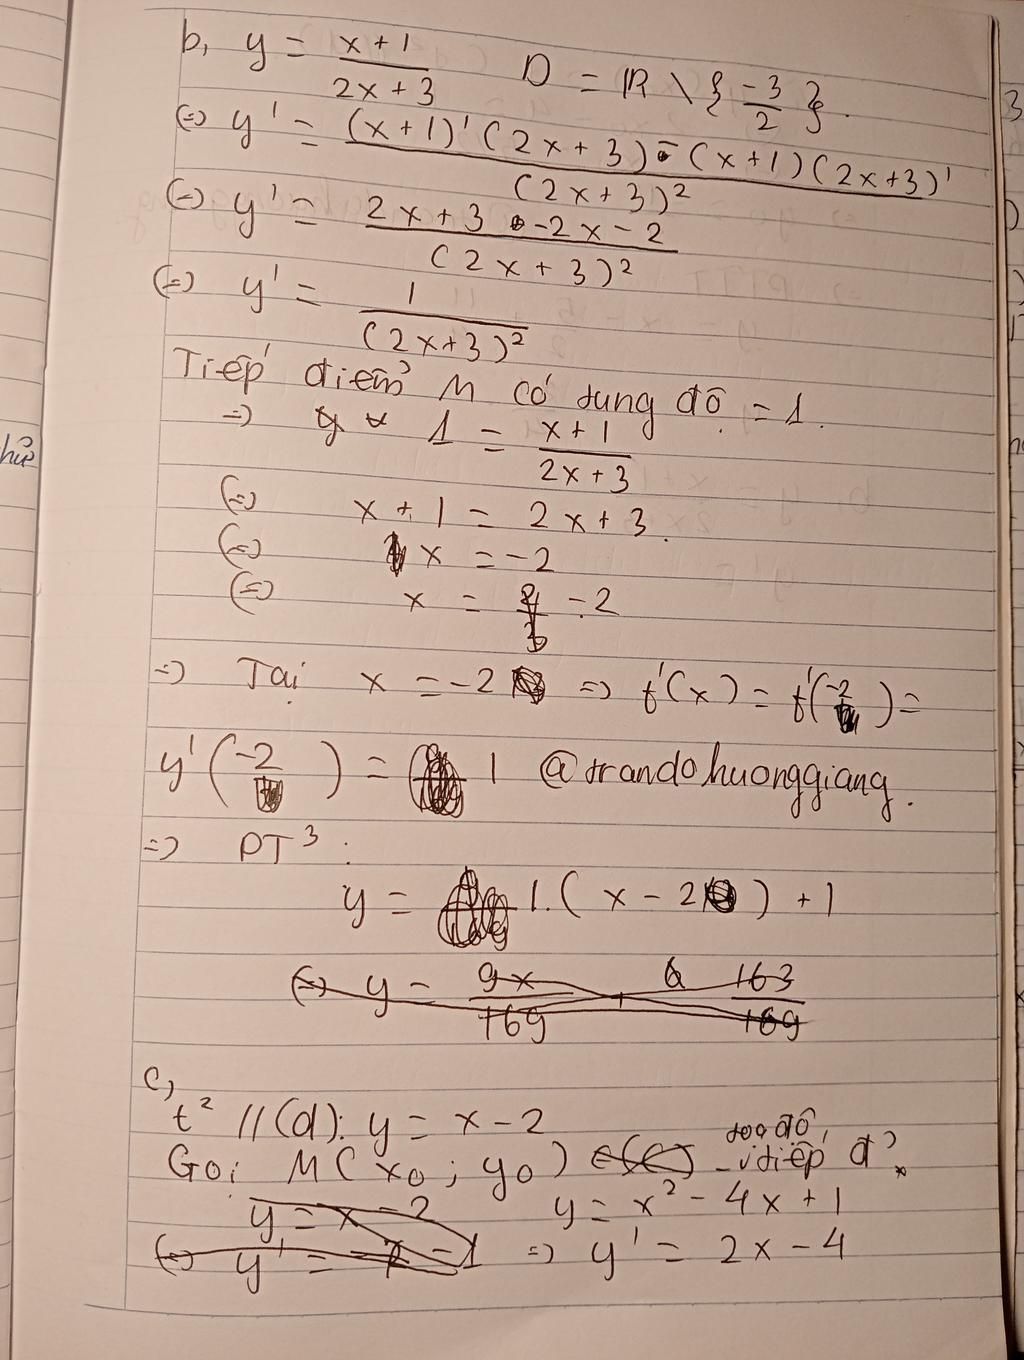 b, y = x + 1 / 2x + 3 D = ℝ \ { -3/2 }.
(=) y' = (x+1)' (2x+3) - (x+1)(2x+3)' / (2x+3)²
(=) y' = 2x+3 -2x-2 / (2x+3)²
(=) y' = 1 / (2x+3)²
Tiếp điểm M có tung độ = 1.
=) 1 = x+1 / 2x+3
(=) x + 1 = 2x + 3.
(=) x = -2
(=) x = -2
=) Tại x = -2 =) f'(x) = f'(-2) =
y'(-2) = 1 @trandohuonggiang.
=) PT³ :
y = 1.(x - 2) + 1
(=) y = 9x/169 + 163/169
c,
t² //(d): y = x - 2
Gọi M(x₀; y₀) toạ độ tiếp đ?
y = x - 2 y = x² - 4x + 1
(=) y' = =) y' = 2x - 4